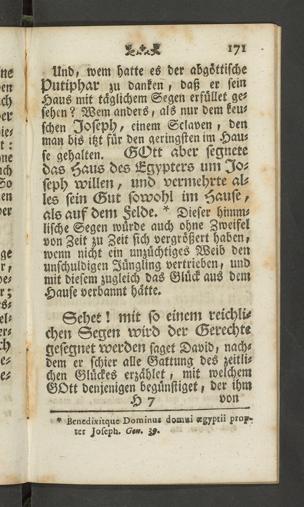 171
Und, wem hatte es der abgöttische
Putiphar zu danken, daß er sein
Haus mit täglichem Segen erfüllet ge-
sehen? Wem anders, als nur dem keu-
schen Joseph, einem Sclaven, den
man bis itzt für den geringsten im Hau-
se gehalten. GOtt aber segnete
das Haus des Egypters um Jo-
seph willen, und vermehrte al-
les sein Gut sowohl im Hause,
als auf dem Felde. * Dieser himm-
lische Segen würde auch ohne Zweifel
von Zeit zu Zeit sich vergrößert haben,
wenn nicht ein unzüchtiges Weib den
unschuldigen Jüngling vertrieben, und
mit diesem zugleich das Glück aus dem
Hause verbannt hätte.
Sehet! mit so einem reichli-
chen Segen wird der Gerechte
gesegnet werden saget David, nach-
dem er schier alle Gattung des zeitli-
chen Glückes erzählet, mit welchem
GOtt denjenigen begünstiget, der ihm
H 7 von
* Benedixitque Dominus domui ægyptii prop-
ter Joseph. Gen. 39.